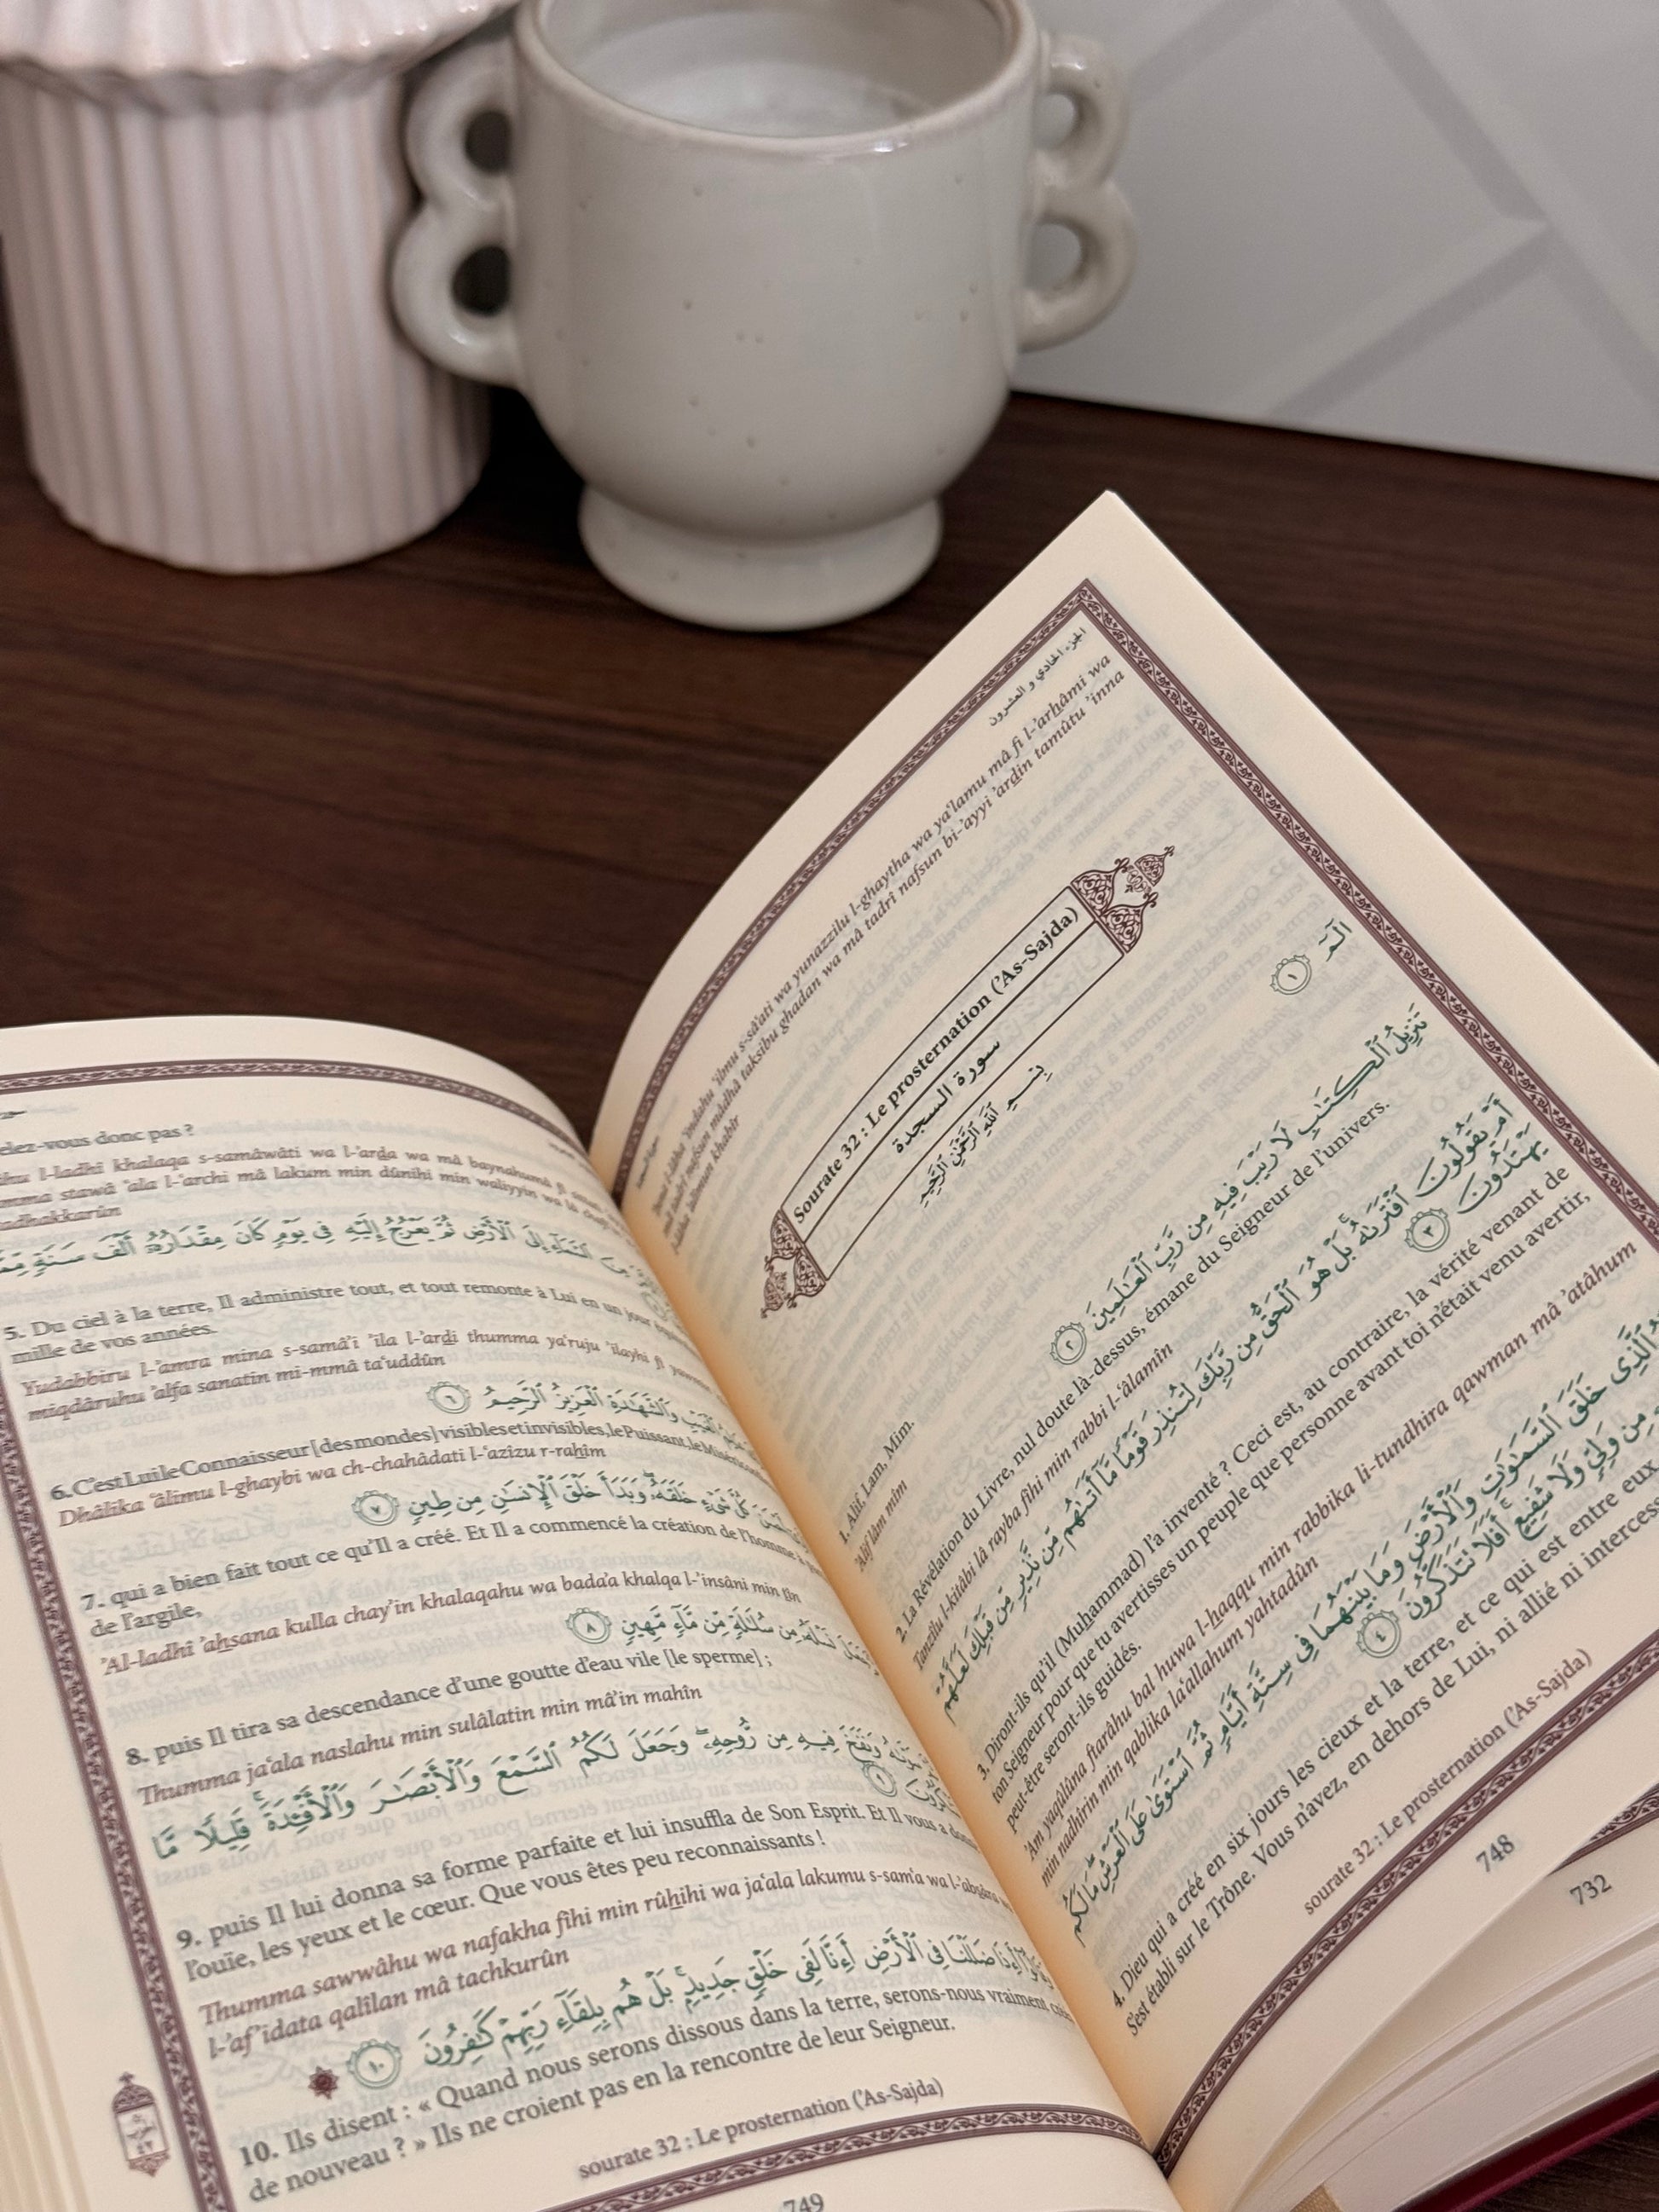 الجزء الحادي و العشرون
'ilmu s-sâ'ati wa yunazzilu l-ghaytha wa ya'lamu mâ fi l-'arhâmi wa
taksibu ghadan wa mâ tadrî nafsun bi-'ayyi 'ardin tamûtu 'inna
Sourate 32 : Le prosternation ('As-Sajda)
سورة السجدة
بِسْمِ اللَّهِ الرَّحْمَٰنِ الرَّحِيمِ
الٓمٓ ١
1. Alif, Lam, Mim.
'Alif lâm mîm
تَنزِيلُ ٱلْكِتَٰبِ لَا رَيْبَ فِيهِ مِن رَّبِّ ٱلْعَٰلَمِينَ ٢
2. La Révélation du Livre, nul doute là-dessus, émane du Seigneur de l'univers.
Tanzîlu l-kitâbi lâ rayba fîhi min rabbi l-'âlamîn
أَمْ يَقُولُونَ ٱفْتَرَىٰهُ بَلْ هُوَ ٱلْحَقُّ مِن رَّبِّكَ لِتُنذِرَ قَوْمًا مَّآ أَتَىٰهُم مِّن نَّذِيرٍ مِّن قَبْلِكَ لَعَلَّهُمْ
يَهْتَدُونَ ٣
3. Diront-ils qu'il (Muhammad) l'a inventé ? Ceci est, au contraire, la vérité venant de
ton Seigneur pour que tu avertisses un peuple que personne avant toi n'était venu avertir,
peut-être seront-ils guidés.
'Am yaqûlûna ftarâhu bal huwa l-haqqu min rabbika li-tundhira qawman mâ 'atâhum
min nadhirin min qablika la'allahum yahtadûn
ٱلَّذِى خَلَقَ ٱلسَّمَٰوَٰتِ وَٱلْأَرْضَ وَمَا بَيْنَهُمَا فِى سِتَّةِ أَيَّامٍ ثُمَّ ٱسْتَوَىٰ عَلَى ٱلْعَرْشِ مَا لَكُم
مِن وَلِىٍّ وَلَا شَفِيعٍ أَفَلَا تَتَذَكَّرُونَ ٤
4. Dieu qui a créé en six jours les cieux et la terre, et ce qui est entre eux
S'est établi sur le Trône. Vous n'avez, en dehors de Lui, ni allié ni intercess
sourate 32 : Le prosternation ('As-Sajda)
748
732
elez-vous donc pas ?
hu l-ladhî khalaqa s-samâwâti wa l-'arda wa mâ baynahumâ fî
mma stawâ 'ala l-'archi mâ lakum min dûnihi min waliyyin wa lâ
adhakkarûn
مِنَ ٱلسَّمَآءِ إِلَى ٱلْأَرْضِ ثُمَّ يَعْرُجُ إِلَيْهِ فِى يَوْمٍ كَانَ مِقْدَارُهُۥٓ أَلْفَ سَنَةٍ
5. Du ciel à la terre, Il administre tout, et tout remonte à Lui en un jour
mille de vos années.
Yudabbiru l-'amra mina s-samâ'i 'ila l-'ardi thumma ya'ruju 'ilayhi fî
miqdâruhu 'alfa sanatin mi-mmâ ta'uddûn
ٱلْغَيْبِ وَٱلشَّهَٰدَةِ ٱلْعَزِيزُ ٱلرَّحِيمُ ٦
6. C'est Lui le Connaisseur [des mondes] visibles et invisibles, le Puissant, le
Dhâlika 'âlimu l-ghaybi wa ch-chahâdati l-'azîzu r-rahîm
كُلَّ شَىْءٍ خَلَقَهُۥ وَبَدَأَ خَلْقَ ٱلْإِنسَٰنِ مِن طِينٍ ٧
7. qui a bien fait tout ce qu'Il a créé. Et Il a commencé la création de l'homme à
de l'argile,
'Al-ladhî 'ahsana kulla chay'in khalaqahu wa bada'a khalqa l-'insâni min tîn
نَسْلَهُۥ مِن سُلَٰلَةٍ مِّن مَّآءٍ مَّهِينٍ ٨
8. puis Il tira sa descendance d'une goutte d'eau vile [le sperme] ;
Thumma ja'ala naslahu min sulâlatin min mâ'in mahîn
وَنَفَخَ فِيهِ مِن رُّوحِهِۦ وَجَعَلَ لَكُمُ ٱلسَّمْعَ وَٱلْأَبْصَٰرَ وَٱلْأَفْـِٔدَةَ قَلِيلًا مَّا
٩
9. puis Il lui donna sa forme parfaite et lui insuffla de Son Esprit. Et Il vous a
l'ouïe, les yeux et le cœur. Que vous êtes peu reconnaissants !
Thumma sawwâhu wa nafakha fîhi min rûhihi wa ja'ala lakumu s-sam'a wa l-'absâra
l-'af'idata qalîlan mâ tachkurûn
أَءِذَا ضَلَلْنَا فِى ٱلْأَرْضِ أَءِنَّا لَفِى خَلْقٍ جَدِيدٍۭ بَلْ هُم بِلِقَآءِ رَبِّهِمْ كَٰفِرُونَ ١٠
10. Ils disent : « Quand nous serons dissous dans la terre, serons-nous vraiment
de nouveau ? » Ils ne croient pas en la rencontre de leur Seigneur.
sourate 32 : Le prosternation ('As-Sajda)
749